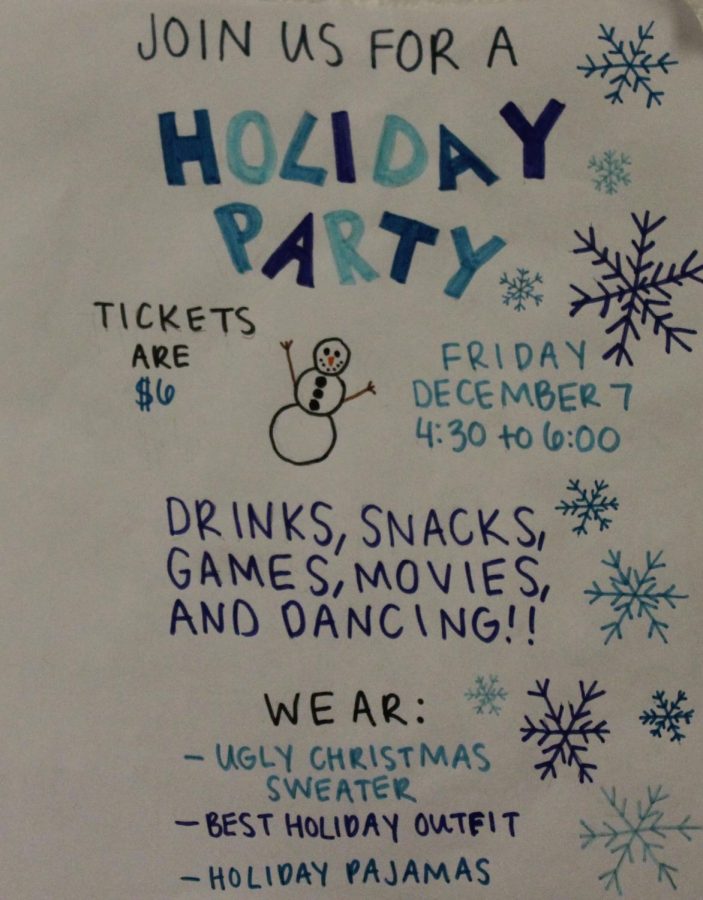 JOIN US FOR A
HOLIDAY
PARTY
TICKETS
ARE
$6
FRIDAY
DECEMBER 7
4:30 to 6:00
DRINKS, SNACKS,
GAMES, MOVIES,
AND DANCING!!
WEAR:
- UGLY CHRISTMAS
SWEATER
- BEST HOLIDAY OUTFIT
- HOLIDAY PAJAMAS